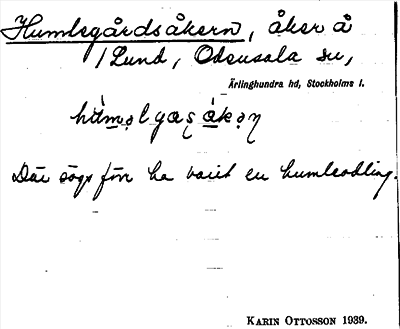 Humlegårdsåkern, åker å
/ Lund, Odensala sn,
Ärlinghundra hd, Stockholms l.
Där sägs förr ha varit en humleodling.
KARIN OTTOSSON 1939.